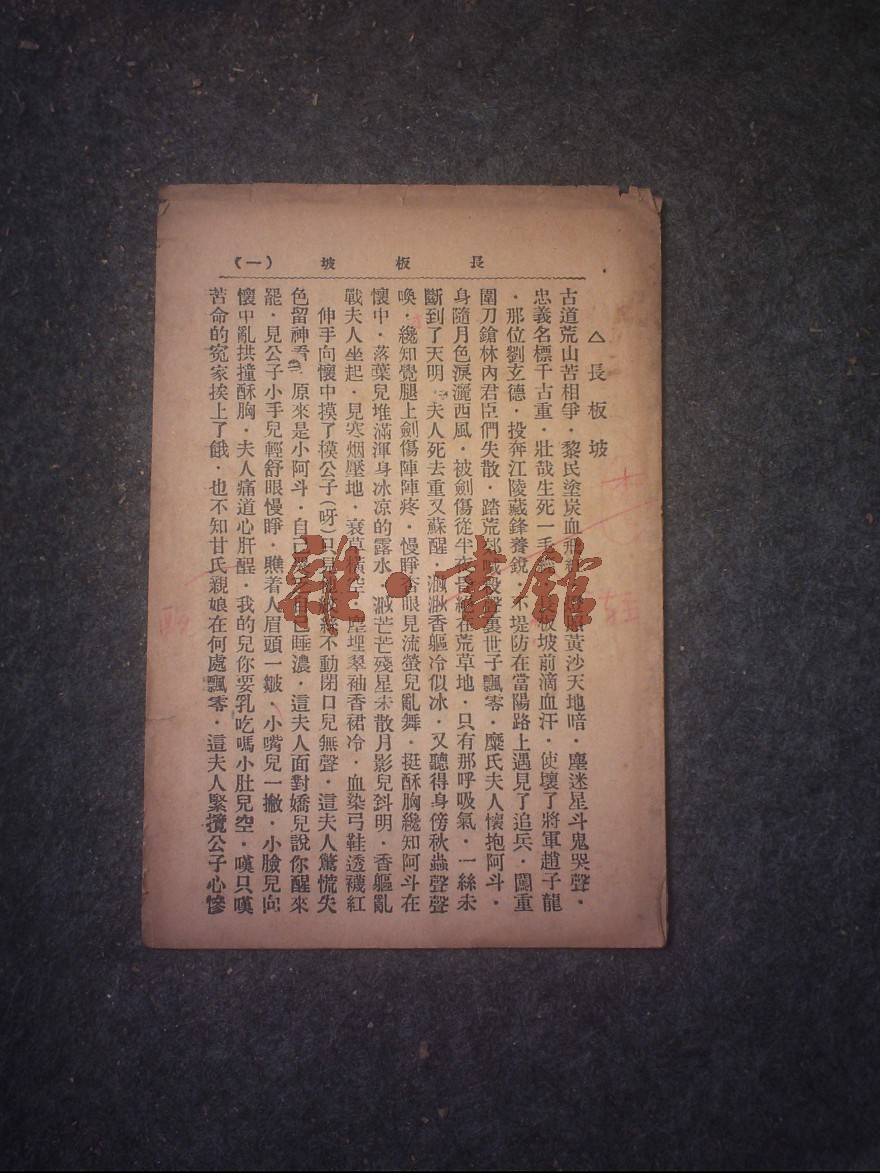 長板坡 (一)
△長板坡
古道荒山苦相爭・黎民塗炭血飛 黃沙天地暗・塵迷星斗鬼哭聲・
忠義名標千古重・壯哉生死一毛 長板坡前滴血汗・使壞了將軍趙子龍
・那位劉玄德・投奔江陵藏鋒養銳 不堤防在當陽路上遇見了追兵・闖重
圍刀鎗林內君臣們失散・踏荒郊喊殺聲裏世子飄零・糜氏夫人懷抱阿斗・
身隨月色淚灑西風・被劍傷從半夜昏絕在荒草地・只有那呼吸氣・一絲未
斷到了天明・夫人死去重又蘇醒・溵溵香軀冷似冰・又聽得身傍秋蟲聲聲
喚・纔知覺腿上劍傷陣陣疼・慢睜杏眼見流螢兒亂舞・挺酥胸纔知阿斗在
懷中・落葉兒堆滿渾身冰凉的露水・溵芒芒殘星未散月影兒斜明・香軀亂
戰夫人坐起・見寒烟壓地・衰草橫空・塵埋翠袖香裙冷・血染弓鞋透襪紅
伸手向懷中摸了摸公子(呀)只見他 絲不動閉口兒無聲・這夫人驚慌失
色留神看 原來是小阿斗・自己 自己睡濃・這夫人面對嬌兒說你醒來
罷・見公子小手兒輕舒眼慢睜・瞧着人眉頭一皺・小嘴兒一撇・小臉兒向
懷中亂拱撞酥胸・夫人痛道心肝醒・我的兒你要乳吃嗎小肚兒空・嘆只嘆
苦命的冤家挨上了餓・也不知甘氏親娘在何處飄零・這夫人緊攬公子心慘
雜・書館